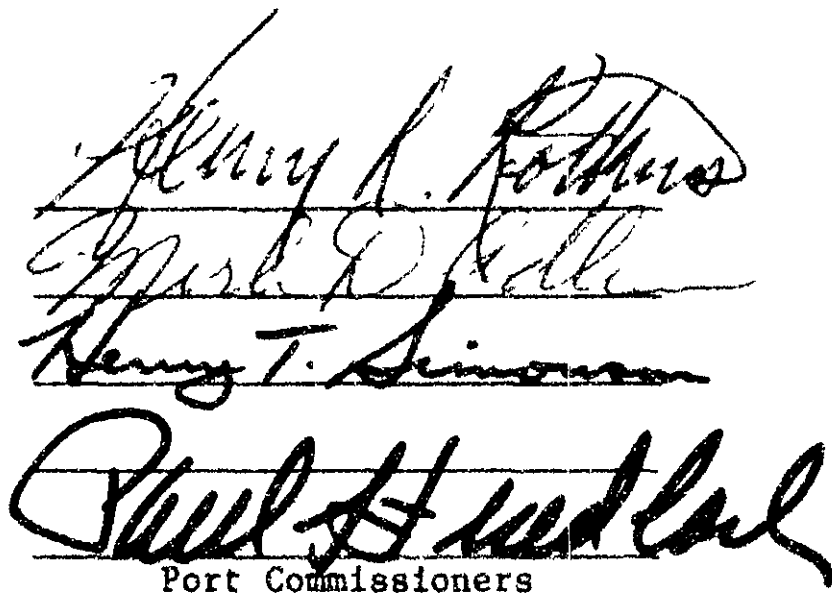 Henry L. Kotkins
Merle D. Adlum
Henry T. Simonson
Paul S Friedlander
Port Commissioners